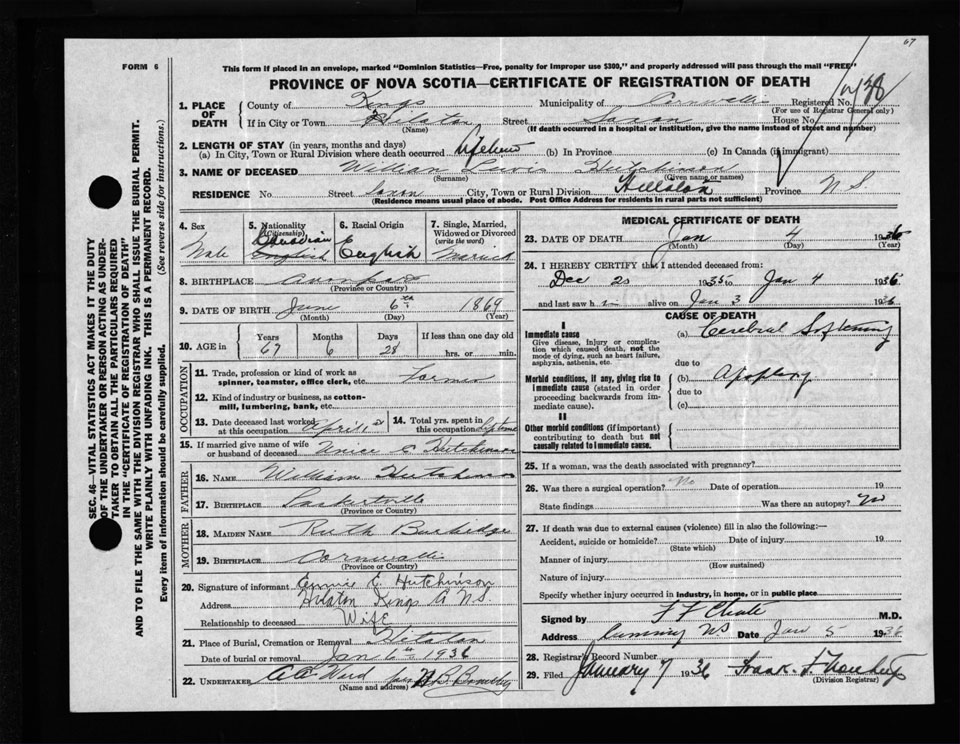 67
FORM 6
This form if placed in an envelope, marked "Dominion Statistics—Free, penalty for improper use $300," and properly addressed will pass through the mail "FREE"
PROVINCE OF NOVA SCOTIA—CERTIFICATE OF REGISTRATION OF DEATH
1. PLACE OF DEATH
County of Kings Municipality of Cornwallis Registered No.
(For use of Registrar General only)
If in City or Town Street Saxon House No.
(Name) (If death occurred in a hospital or institution, give the name instead of street and number)
2. LENGTH OF STAY (in years, months and days)
(a) In City, Town or Rural Division where death occurred (b) In Province (c) In Canada (if immigrant)
3. NAME OF DECEASED William Lewis Hutchinson
(Surname) (Given name or names)
RESIDENCE No. Street Saxon City, Town or Rural Division Province N.S.
(Residence means usual place of abode. Post Office Address for residents in rural parts not sufficient)
4. Sex
Male
5. Nationality
(Citizenship)
Canadian
English
6. Racial Origin
English
7. Single, Married, Widowed or Divorced
(write the word)
Married
8. BIRTHPLACE
(Province or Country)
9. DATE OF BIRTH June 6th 1869
(Month) (Day) (Year)
10. AGE in Years Months Days If less than one day old
67 6 28 hrs. or min.
OCCUPATION
11. Trade, profession or kind of work as spinner, teamster, office clerk, etc. Farmer
12. Kind of industry or business, as cotton-mill, lumbering, bank, etc.
13. Date deceased last worked at this occupation April
14. Total yrs. spent in this occupation
15. If married give name of wife or husband of deceased Hutchinson
FATHER
16. NAME William Hutchinson
17. BIRTHPLACE
(Province or Country)
MOTHER
18. MAIDEN NAME Ruth Burbidge
19. BIRTHPLACE Cornwallis
(Province or Country)
20. Signature of informant Annie E. Hutchinson
Address Kings Co N.S.
Relationship to deceased Wife
21. Place of Burial, Cremation or Removal
Date of burial or removal Jan 6th 1936
22. UNDERTAKER Ward
(Name and address)
MEDICAL CERTIFICATE OF DEATH
23. DATE OF DEATH Jan 4 1936
(Month) (Day) (Year)
24. I HEREBY CERTIFY that I attended deceased from:
Dec 20 1935 to Jan 4 1936
and last saw h alive on Jan 3 1936
CAUSE OF DEATH
I
Immediate cause
Give disease, injury or complication which caused death, not the mode of dying, such as heart failure, asphyxia, asthenia, etc.
(a) Cerebral Softening
due to
Morbid conditions, if any, giving rise to immediate cause (stated in order proceeding backwards from immediate cause).
(b) Apoplexy
due to
(c)
II
Other morbid conditions (if important) contributing to death but not causally related to immediate cause.
25. If a woman, was the death associated with pregnancy?
26. Was there a surgical operation? No Date of operation 19
State findings Was there an autopsy? No
27. If death was due to external causes (violence) fill in also the following:—
Accident, suicide or homicide? Date of injury 19
(State which)
Manner of injury
(How sustained)
Nature of injury
Specify whether injury occurred in industry, in home, or in public place
Signed by M.D.
Address Canning NS Date Jan 5 1936
28. Registrar's Record Number
29. Filed January 7 1936 Frank
(Division Registrar)
SEC. 46—VITAL STATISTICS ACT MAKES IT THE DUTY
OF THE UNDERTAKER OR PERSON ACTING AS UNDER-
TAKER TO OBTAIN ALL THE PARTICULARS REQUIRED
IN THE "CERTIFICATE OF REGISTRATION OF DEATH"
AND TO FILE THE SAME WITH THE DIVISION REGISTRAR WHO SHALL ISSUE THE BURIAL PERMIT.
WRITE PLAINLY WITH UNFADING INK. THIS IS A PERMANENT RECORD.
Every item of information should be carefully supplied. (See reverse side for instructions.)